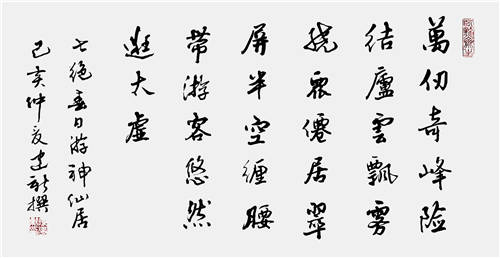 萬仞奇峰险
结廬雲飄雾
繞眾僊居翠
屏半空纏腰
带游客悠然
逛大虚
七绝春日游神仙居
己亥仲夏建新撰